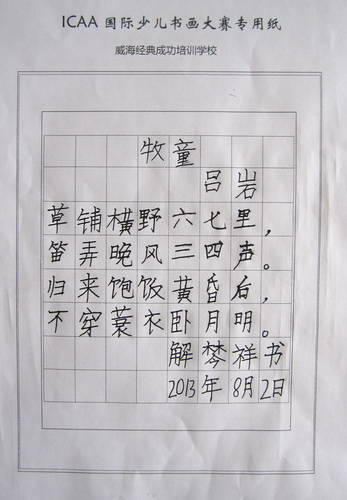 ICAA 国际少儿书画大赛专用纸
威海经典成功培训学校
牧童
吕岩
草铺横野六七里，
笛弄晚风三四声。
归来饱饭黄昏后，
不穿蓑衣卧月明。
解棽祥书
2013年8月2日